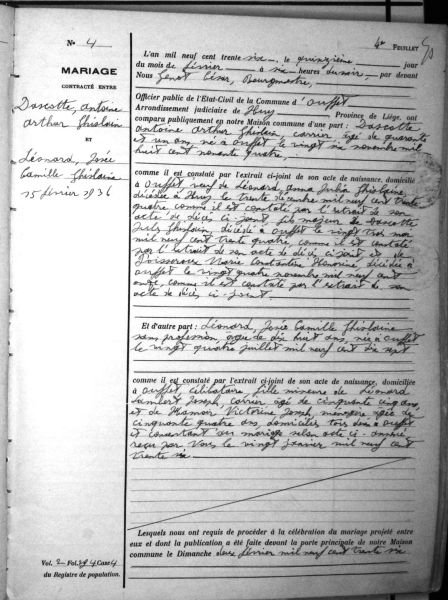 4e FEUILLET
N° 4
MARIAGE
CONTRACTÉ ENTRE
Dascotte, Antoine
Arthur Ghislain
ET
Léonard, Josée
Camille Ghislaine
15 février 1936
L'an mil neuf cent trente six, le quinzième jour
du mois de février à six heures du soir, par devant
Nous Genot César, Bourgmestre,
Officier public de l'État-Civil de la Commune d'Ouffet
Arrondissement judiciaire de Huy, Province de Liége, ont
comparu publiquement en notre Maison commune d'une part : Dascotte
Antoine Arthur Ghislain, carrier, âgé de quarante
et un ans, né à Ouffet le vingt six novembre mil
huit cent nonante quatre,
comme il est constaté par l'extrait ci-joint de son acte de naissance, domicilié
à Ouffet, veuf de Léonard, Anna Julia Ghislaine,
décédée à Huy le trente décembre mil neuf cent trente
quatre comme il est constaté par l'extrait de son
acte de décès ci-joint, fils majeur de Dascotte
Jules Ghislain, décédé à Ouffet le vingt trois mai
mil neuf cent trente quatre, comme il est constaté
par l'extrait de son acte de décès ci-joint et de
Marie Constantine Honorine, décédée à
Ouffet le vingt quatre novembre mil neuf cent
onze, comme il est constaté par l'extrait de son
acte de décès ci-joint.
Et d'autre part : Léonard, Josée Camille Ghislaine
sans profession, âgée de dix huit ans, née à Ouffet
le vingt quatre juillet mil neuf cent dix sept
comme il est constaté par l'extrait ci-joint de son acte de naissance, domiciliée
à Ouffet, célibataire, fille mineure de Léonard
Lambert Joseph, carrier, âgé de cinquante cinq ans,
et de Victorine Joseph, ménagère âgée de
cinquante quatre ans, domiciliés tous deux à Ouffet
et consentant au mariage selon acte ci-annexé
reçu par Nous le vingt janvier mil neuf cent
trente six
Lesquels nous ont requis de procéder à la célébration du mariage projeté entre
eux et dont la publication a été faite devant la porte principale de notre Maison
commune le Dimanche deux février mil neuf cent trente six
Vol. 2 - Fol. 4 Case 4
du Registre de population.